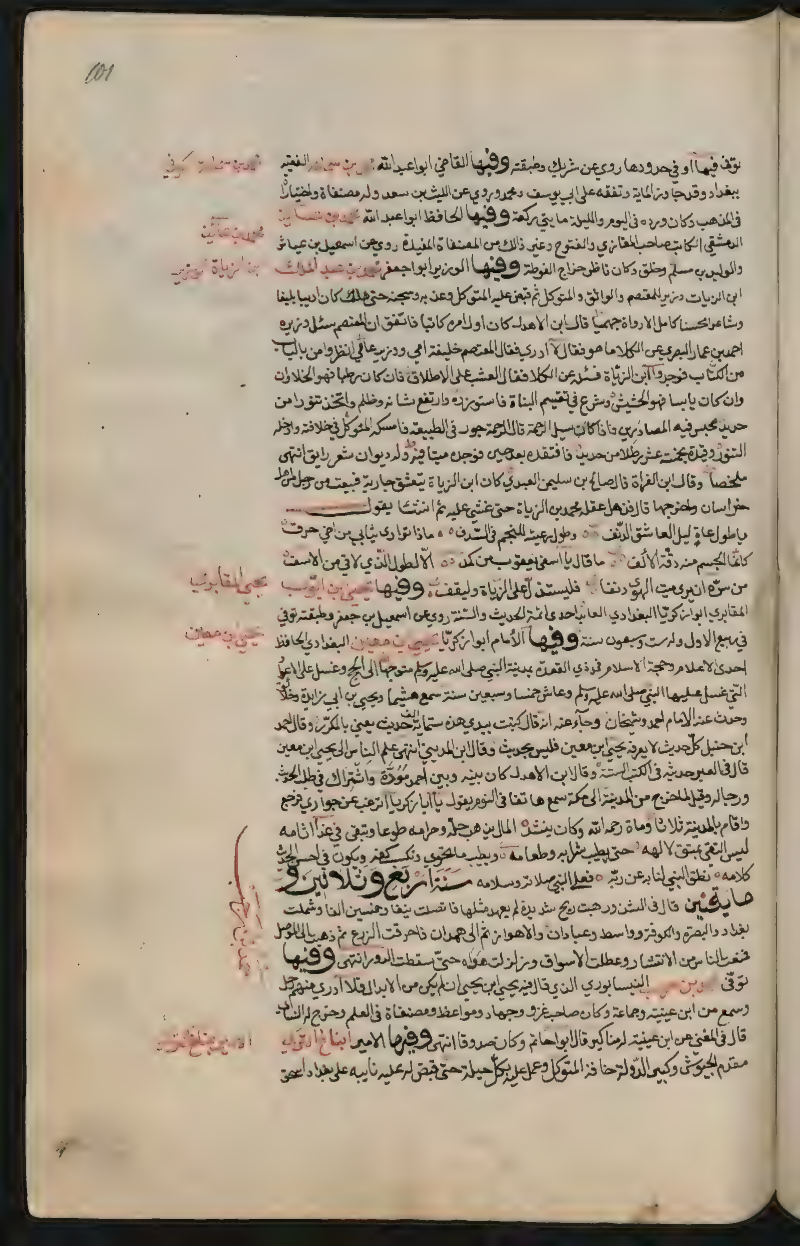 توفى فيها او فى حدودها روى عن شريك وطبقته وفيها القاضى ابو عبد الله محمد بن سماعة الفقيه
ببغداد وقد جاوز الماية وتفقه على ابى يوسف ومحمد وروى عن الليث بن سعد وله مصنفاة واختيارا
فى المذهب وكان ورده فى اليوم والليلة مايتى ركعة وفيها الحافظ ابو عبد الله محمد بن عائذ
الدمشقى الكاتب صاحب المغازى والفتوح وغير ذلك من المصنفاة المفيدة روى عن اسمعيل بن عياش
والوليد بن مسلم وخلق وكان ناظر خراج الغوطة وفيها الوزير ابو جعفر محمد بن عبد الملك
ابن الزيات وزير المعتصم والواثق والمتوكل ثم قبض عليه المتوكل وعذبه وسجنه حتى هلك كان اديبا بليغا
وشاعرا محسنا كامل الادواة جهميا قال ابن الاهدل كان اول امره كاتبا فاتفق ان المعتصم سئل وزيره
احمد بن عمار البصرى عن الكلا ما هو فقال لا ادرى فقال المعتصم خليفة امى ووزير عامى انظروا من بالباب
من الكتاب فوجدوا ابن الزياة فسئله عن الكلا فقال العشب على الاطلاق فان كان رطبا فهو الخلا وان
وان كان يابسا فهو الحشيش وشرع فى تقسيم النباة فاستوزره وارتفع شانه وظلم واتخذ تنورا من
حديد يحبس فيه المصادرين فاذا سئل الرحمة قال الرحمة جور فى الطبيعة فامسكه المتوكل فى خلافته وادخله
التنور وقيده بخمسة عشر رطلا من حديد فافتقده بعد حين فوجده ميتا فيه وله ديوان شعر رايق انتهى
ملخصا وقال ابن الفراة قال صالح بن سليمن العبدى كان ابن الزياة يتعشق جارية فبيعت من رجل من اهل
خراسان واخرجها قال فذهل عقل محمد بن الزياة حتى غشى عليه ثم انشا يقول
يا طول ساعاة ليل العاشق الدنف وطول رعيته للنجم فى السدف ماذا توارى ثيابى من اخى حرف
كانما الجسم منه دقة الالف ما قال يا اسفى يعقوب من كمد الا لطول الذى لاقى من الاسف
من سره ان يرى ميت الهوى دنفا فليستدل على الزياة وليقف وفيها يحيى بن ايوب
المقابرى ابو زكريا البغدادى العابد احدى ائمة الحديث والسنة روى عن اسمعيل بن جعفر وطبقته توفى
فى ربيع الاول وله ست وسبعون سنة وفيها الامام ابو زكريا يحيى بن معين البغدادى الحافظ
احدى الاعلام وحجة الاسلام فى ذى القعدة بمدينة النبى صلى الله عليه وسلم متوجها الى الحج وغسل على الاعواد
التى غسل عليها النبى صلى الله عليه وسلم وعاش خمسا وسبعين سنة سمع هشيما ويحيى بن ابى زايدة وخلايق
وحدث عنه الامام احمد والشيخان وجاء عنه انه قال كتبت بيدى هذه ستماية الف حديث يعنى بالمكرر وقال احمد
ابن حنبل كل حديث لا يعرفه يحيى ابن معين فليس بحديث وقال ابن المدينى انتهى علم الناس الى يحيى ابن معين
قال فى العبر حديثه فى الكتب الستة وقال ابن الاهدل كان بينه وبين احمد مودة واشتراك فى طلب الحديث
ورجاله وقيل لما خرج من المدينة الى مكة سمع هاتفا فى النوم يقول يا ابا زكريا اترغب عن جوارى فرجع
واقام بالمدينة ثلاثا وماة رحمه الله وكان ينشد المال يذهب حله وحرامه طوعا وتبقى فى غد آثامه
ليس التقى بمتق لالهه حتى يطيب شرابه وطعامه ويطيب ما يحوى وتكسب كفه ويكون فى احسن الحديث
كلامه نطق النبى لنا به عن ربه فعلى النبى صلاته وسلامه سنة اربع وثلاثين و
مايتين قال فى الشذور هبت ريح شديدة لم يعهد مثلها فاتصلت نيفا وخمسين يوما وشملت
بغداد والبصرة والكوفة وواسط وعبادان والاهواز ثم الى همدان فاحرقت الزرع ثم ذهبت الى الموصل
فمنعت الناس من الانتشار وعطلت الاسواق وزلزلت هراه حتى سقطت الدور انتهى وفيها
توفى احمد بن حرب النيسابورى الذى قال فيه يحيى ابن يحيى ان لم يكن من الابدال فلا ادرى من هم رحل
وسمع من ابن عيينة وجماعة وكان صاحب غزو وجهاد ومواعظ ومصنفاة فى العلم وخرج له النسائى
قال فى المغنى عن ابن عيينة له مناكير قال ابو حاتم وكان صدوقا انتهى وفيها الامير ايتاخ التركى
مقدم الجيوش وكبير الدولة خافه المتوكل وعمل عليه بكل حيلة حتى قبض له عليه نايبه على بغداد اسحق
محمد بن عائذ
يحيى المقابرى
يحيى ابن معين